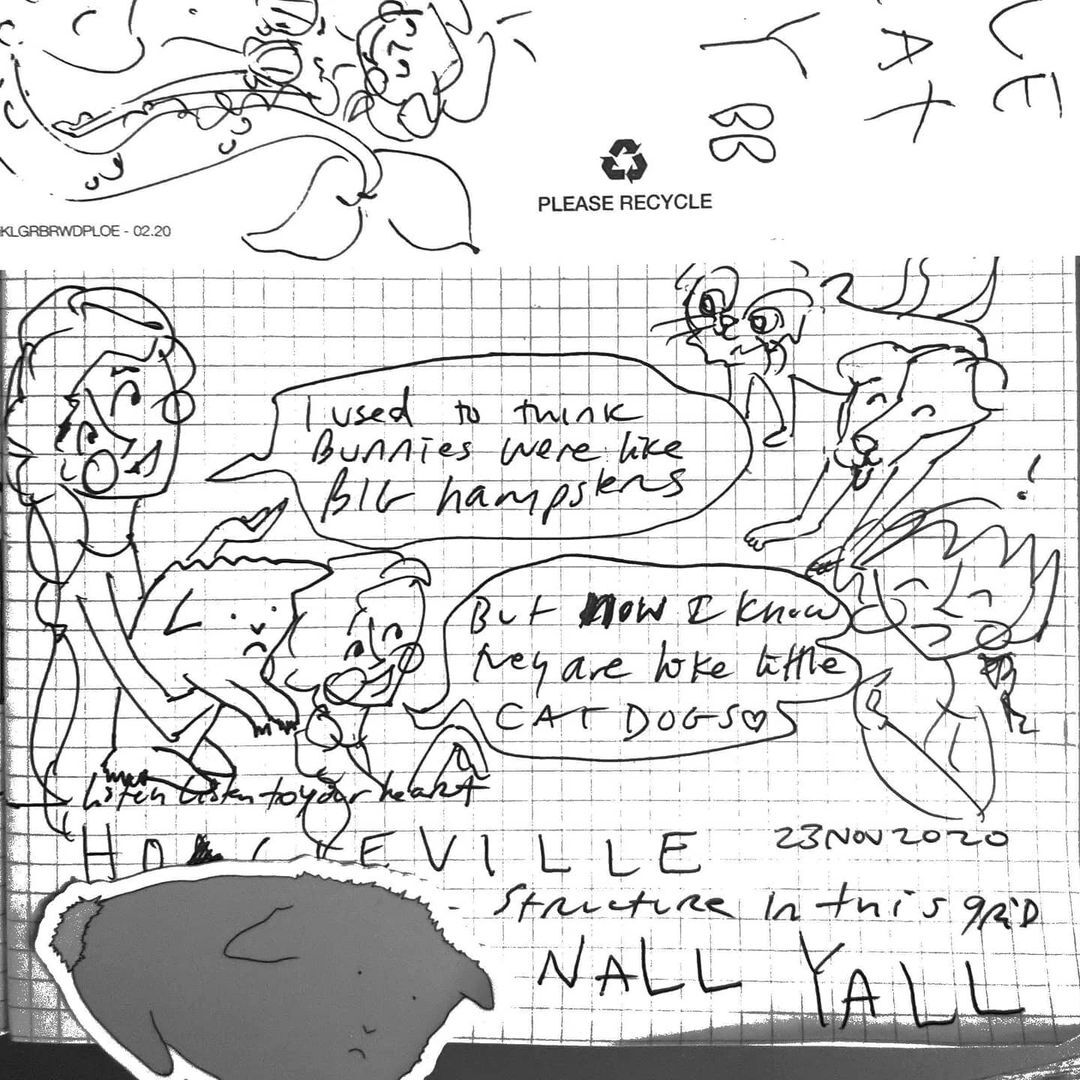 PLEASE RECYCLE
KLGRBRWDPLOE - 02.20
Y
BB
AT
LE
I used to think
Bunnies were like
BIG hampsters
!
But now I know
they are like little
CAT DOGS♡
listen listen to your heart
23 NOV 2020
EVILLE
Structure in this grid
NALL YALL